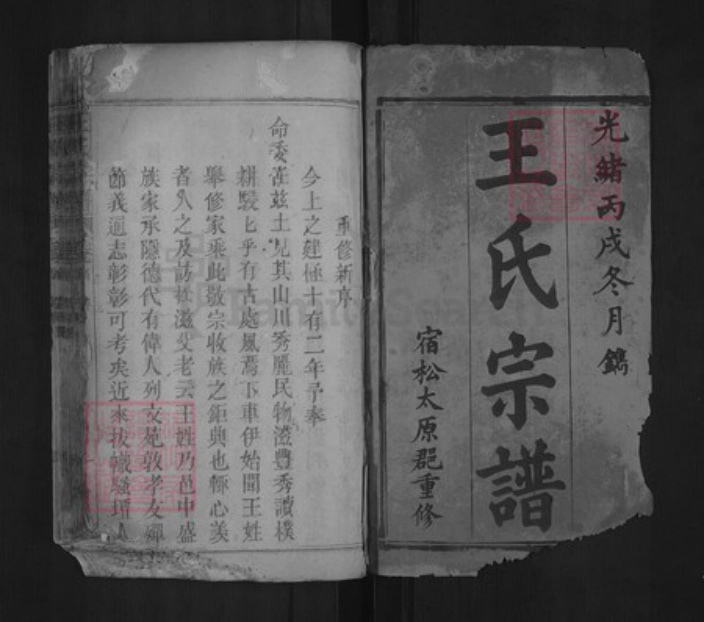 光緒丙戌冬月鐫
王氏宗譜
宿松太原郡重修
重修新序
今上之建極十有二年予奉
命委蒞茲土見其山川秀麗民物滋豐秀讀樸
耕駸乎有古處風焉下車伊始聞王姓
舉修家乘此敬宗收族之鉅典也輒心羨
者久之及訪於滋父老云王姓乃邑中盛
族家承隱德代有偉人列文苑敦孝友殫
節義通志彰彰可考矣近來拔幟騷壇人